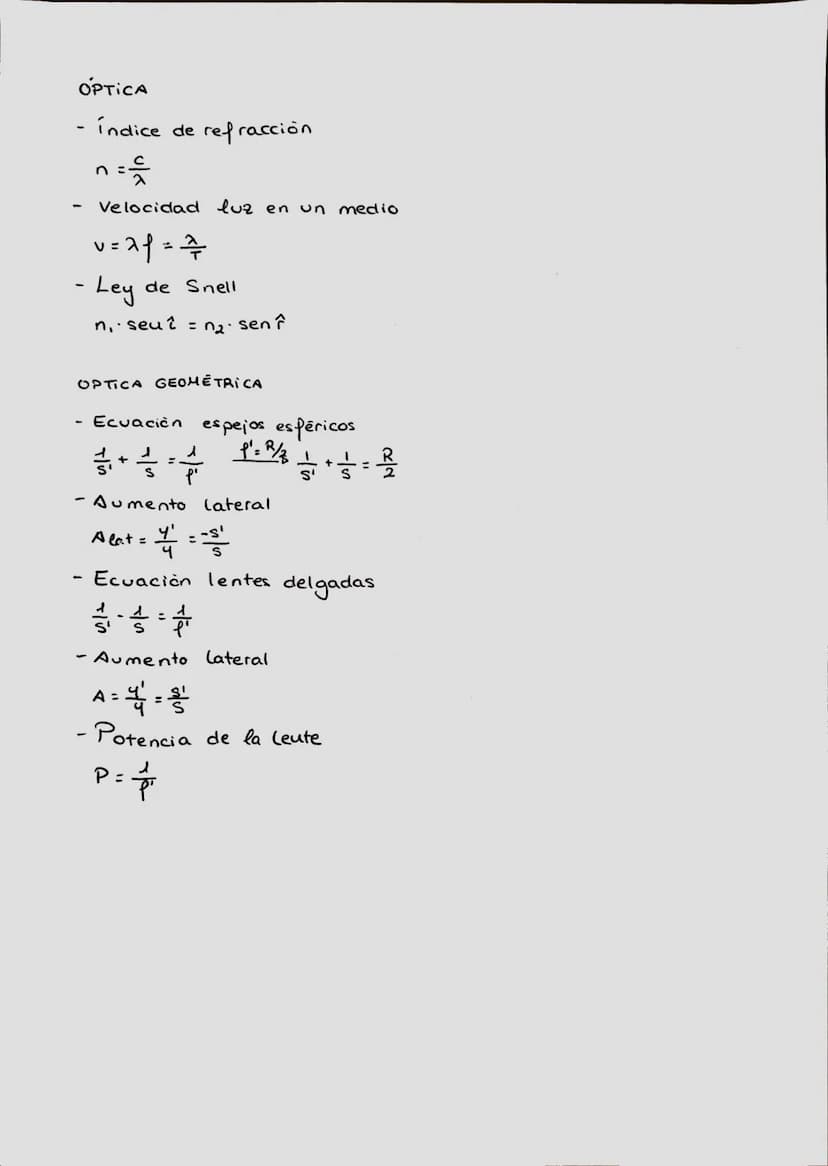 ÓPTICA
- Índice de refracción
n = c/λ
- Velocidad luz en un medio
v = λf = λ/T
- Ley de Snell
n₁ · sen î = n₂ · sen r̂
OPTICA GEOMÉTRICA
- Ecuación espejos esféricos
1/s' + 1/s = 1/f' f' = R/2 1/s' + 1/s = R/2
- Aumento lateral
Alat = y'/y = -s'/s
- Ecuación lentes delgadas
1/s' - 1/s = 1/f'
- Aumento lateral
A = y'/y = s'/s
- Potencia de la lente
P = 1/f'